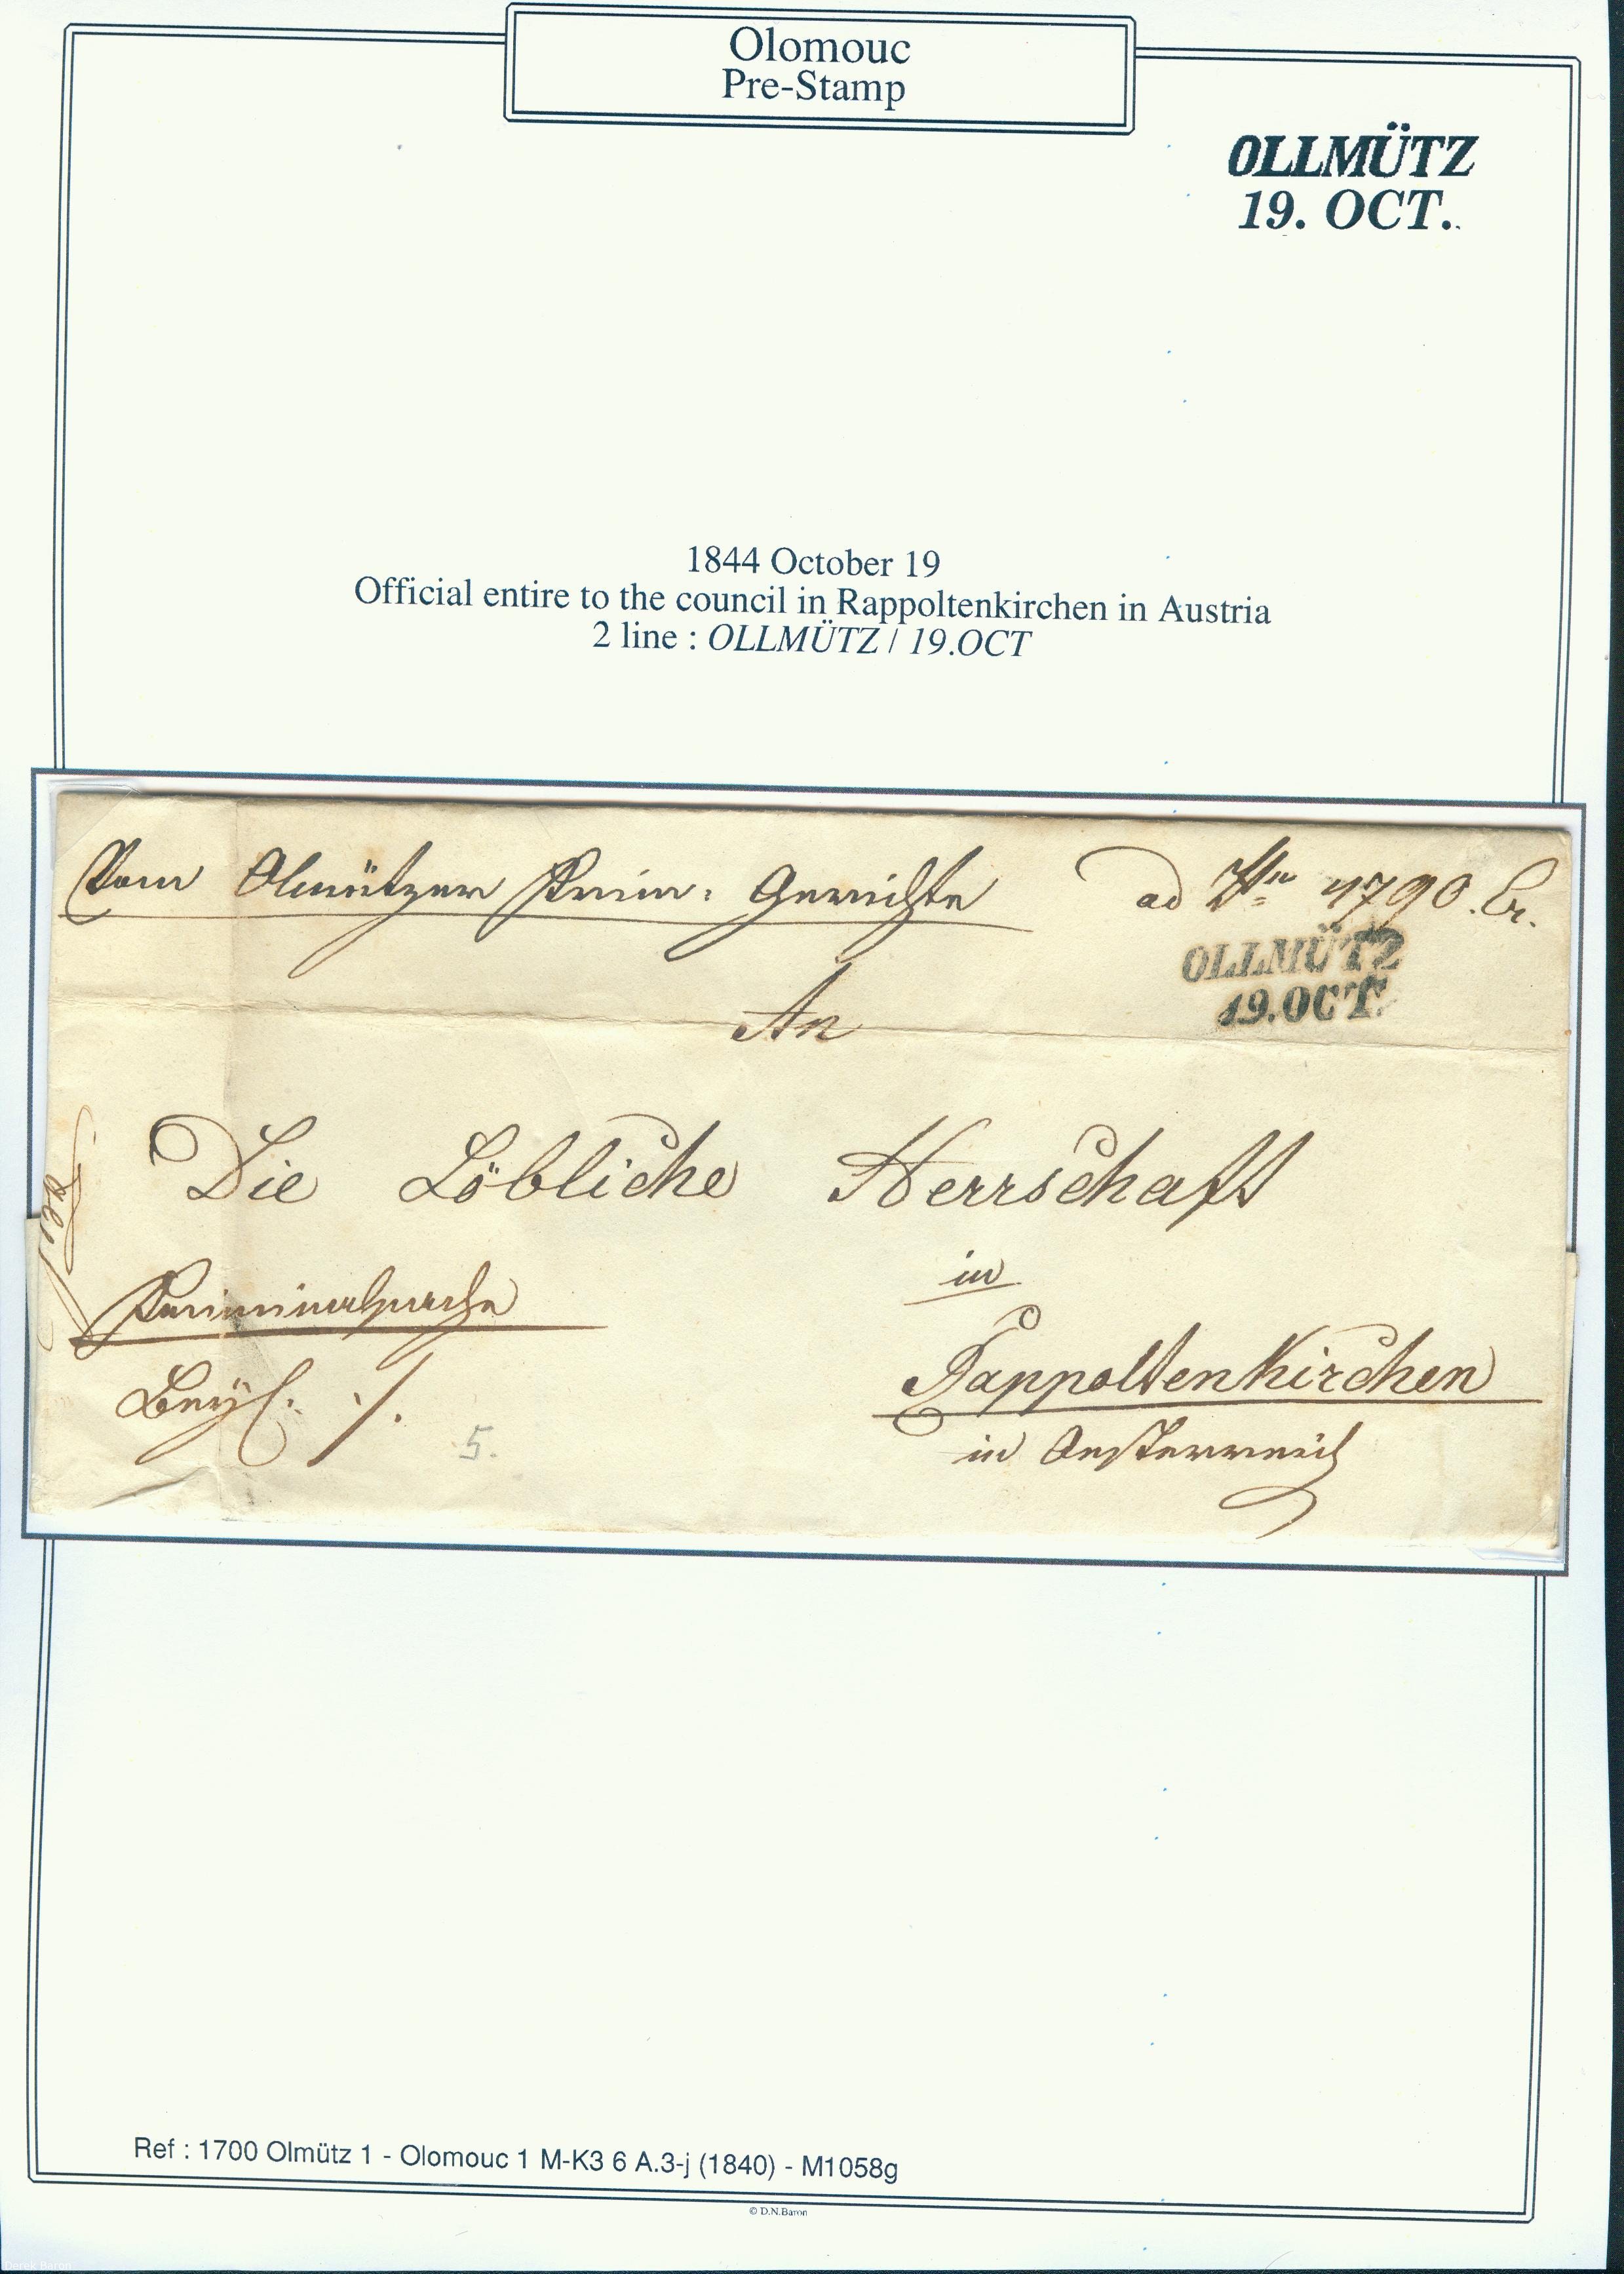 Olomouc
Pre-Stamp
OLLMÜTZ
19. OCT.
1844 October 19
Official entire to the council in Rappoltenkirchen in Austria
2 line : OLLMÜTZ / 19.OCT
Vom Olmützer Krim: Gerichte
ad 4790 Cr.
OLLMÜTZ
19.OCT.
An
Die Löbliche Herrschaft
in
Kriminalsache
Rappoltenkirchen
Beyl. ·/.
5.
in Oesterreich
Ref : 1700 Olmütz 1 - Olomouc 1 M-K3 6 A.3-j (1840) - M1058g
© D.N.Baron
Derek Baron